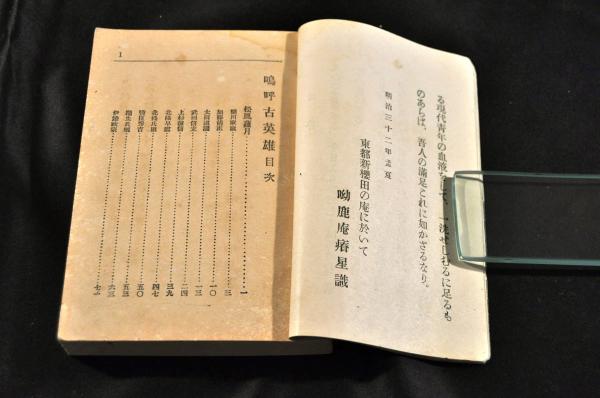 る現代青年の血液をして、一洗せしむるに足るも
のあらば、吾人の滿足これに如かざるなり。
明治三十二年孟夏
東都新櫻田の庵に於いて
呦鹿庵瘠星識
1
嗚呼古英雄目次
松風蘿月……一
徳川家康……三
加藤清正……一〇
太田道灌……一三
武田信玄……二四
上杉謙信……三九
北條早雲……四七
北條氏康……五〇
豐臣秀吉……五三
六三
伊達政宗……七一